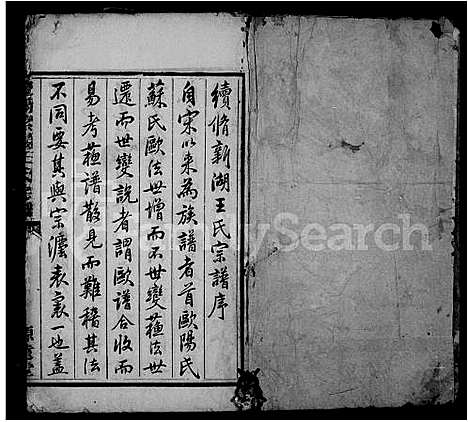 續脩新湖王氏宗譜序
自宋以來為族譜者首歐陽氏
蘇氏歐法世增而不世變蘓法世
遷而世變說者謂歐譜合收而
易考蘓譜散見而難稽其法
不同要其與宗灋表裏一也蓋
FamilySearch